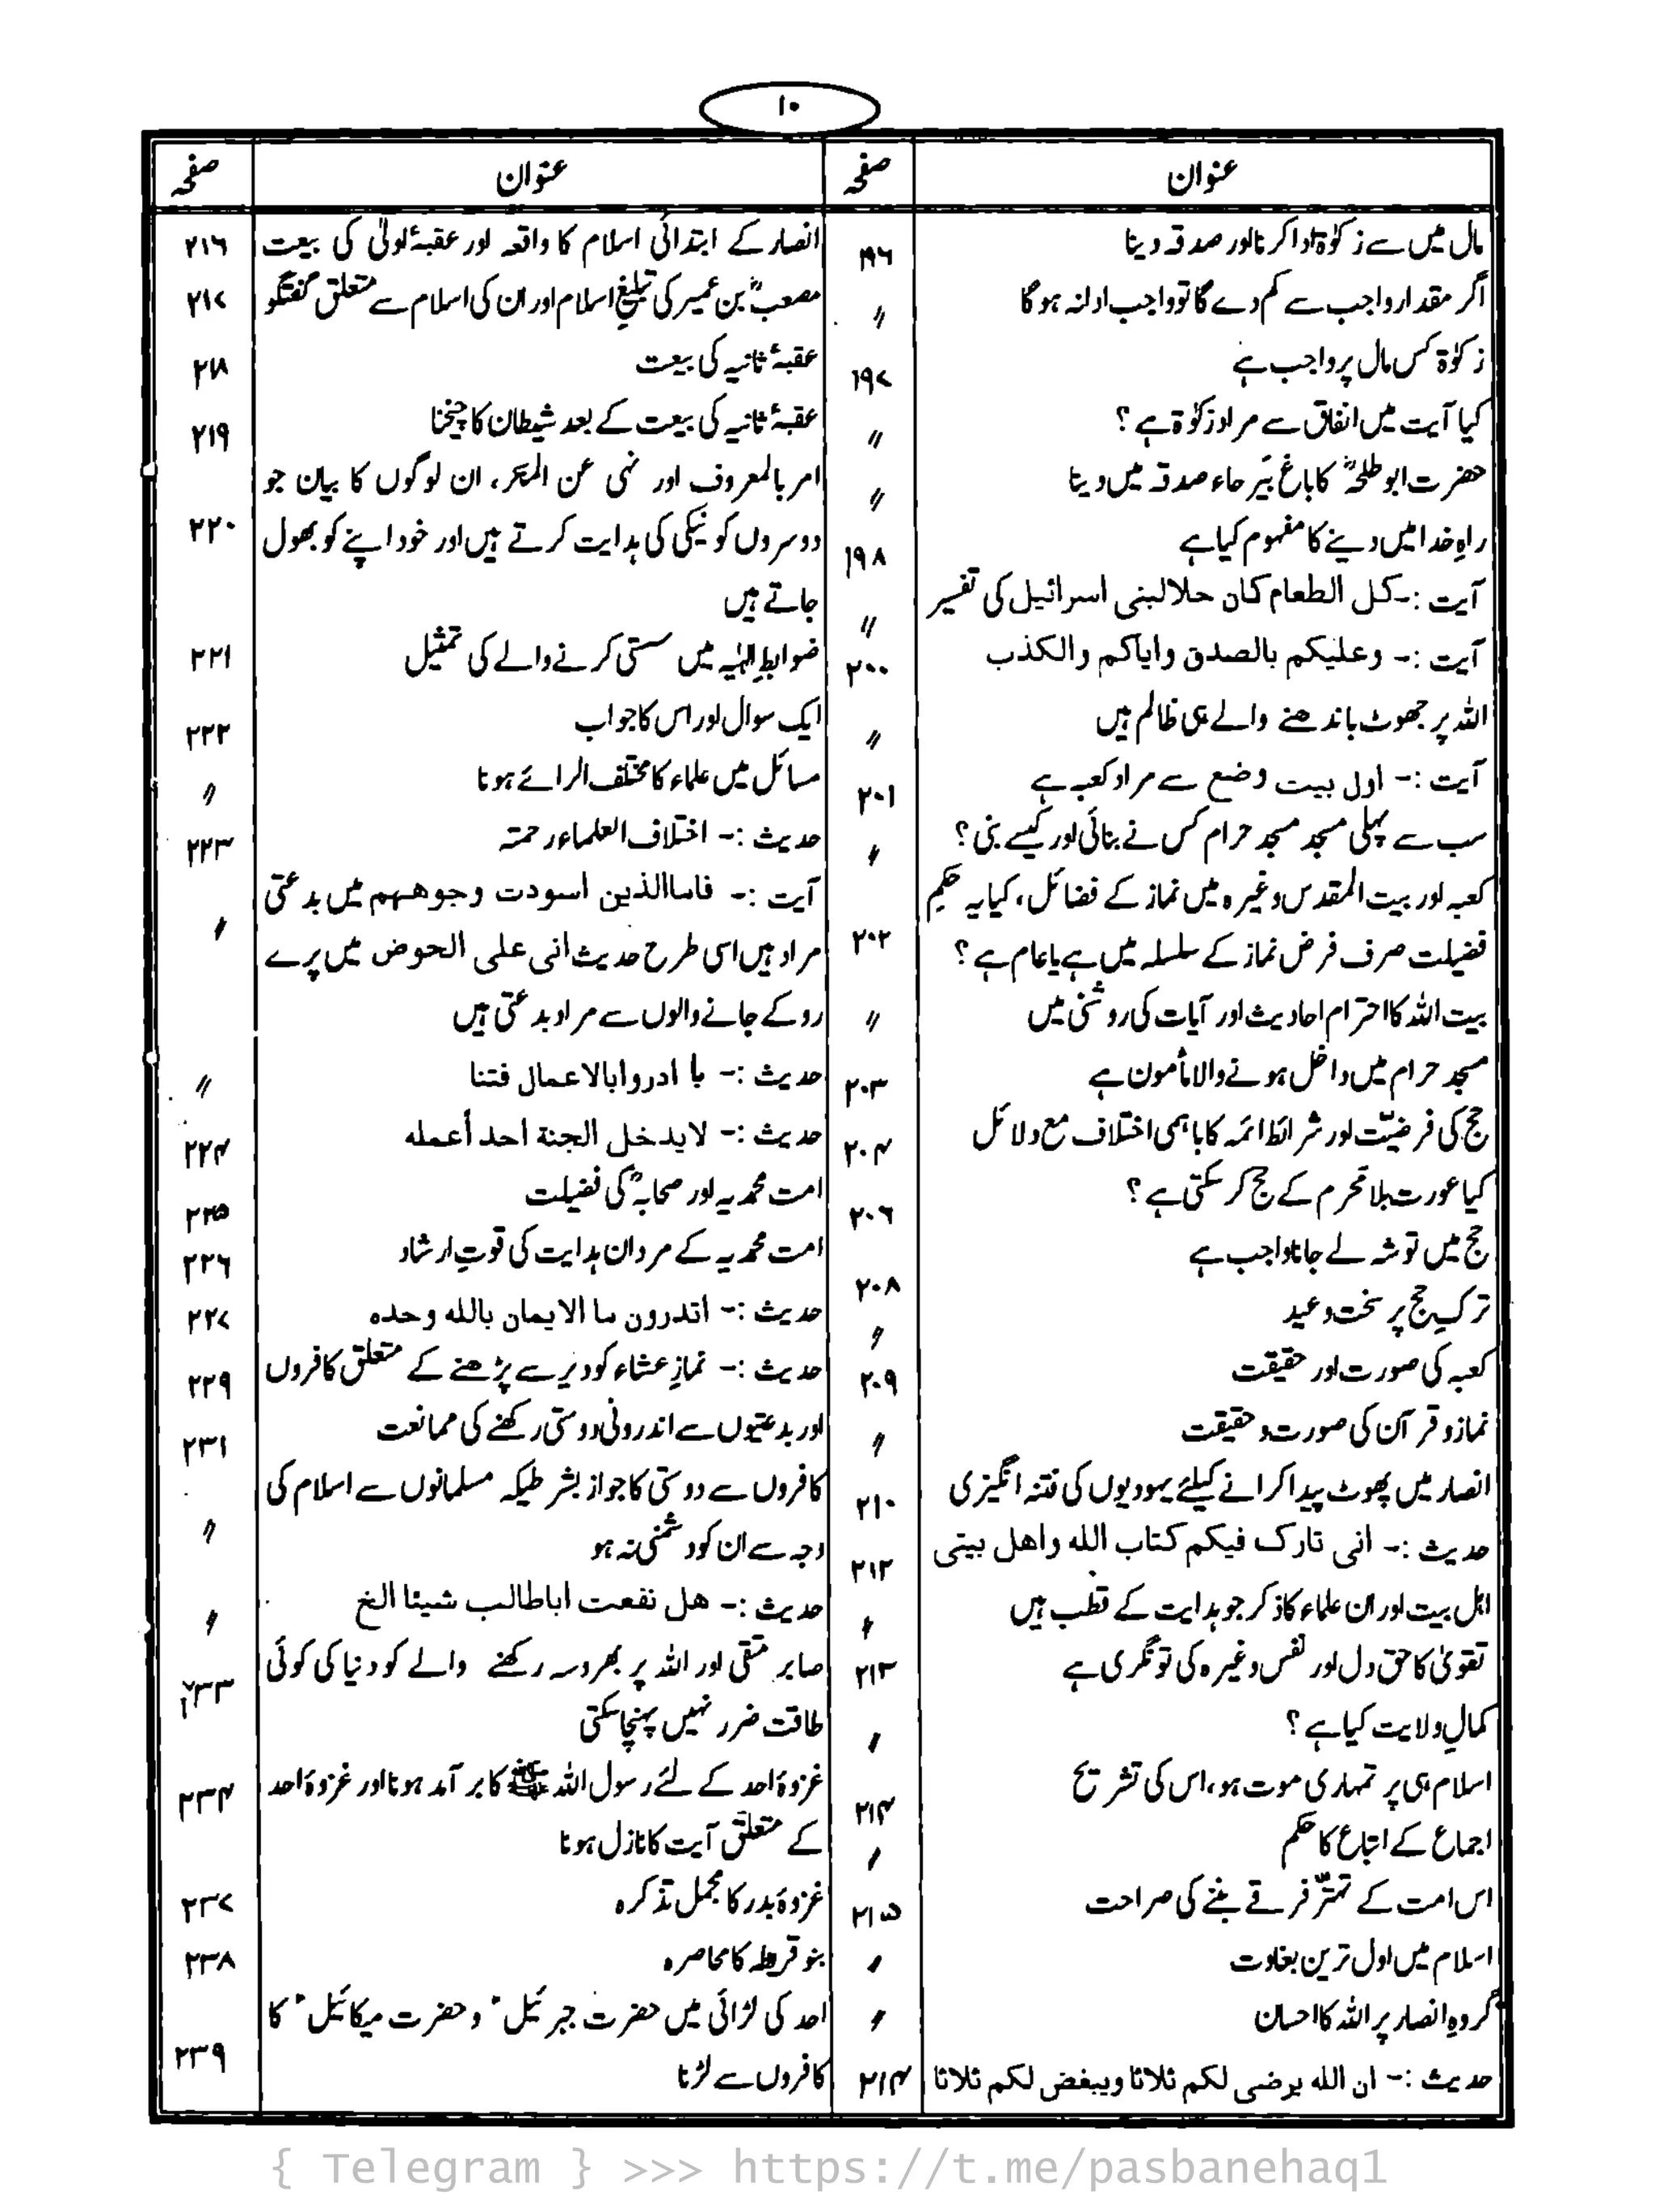 ۱۰
عنوان
صفحہ
مال میں سے زکوٰۃ ادا کرنا اور صدقہ دینا
۱۹۶
اگر مقدار واجب سے کم دے گا تو واجب ادا نہ ہو گا
〃
زکوٰۃ کس مال پر واجب ہے
۱۹۷
کیا آیت میں انفاق سے مراد زکوٰۃ ہے ؟
〃
حضرت ابو طلحہؓ کا باغ بَیرحاء صدقہ میں دینا
〃
راہِ خدا میں دینے کا مفہوم کیا ہے
۱۹۸
آیت :- کل الطعام کان حلالبنی اسرائیل کی تفسیر
〃
آیت :- وعلیکم بالصدق وایاکم والکذب
۲۰۰
اللہ پر جھوٹ باندھنے والے ہی ظالم ہیں
〃
آیت :- اول بیت وضع سے مراد کعبہ ہے
۲۰۱
سب سے پہلی مسجد مسجد حرام کس نے بنائی اور کیسے بنی ؟
〃
کعبہ اور بیت المقدس وغیرہ میں نماز کے فضائل، کیا یہ حکیم
فضیلت صرف فرض نماز کے سلسلہ میں ہے یا عام ہے ؟
۲۰۲
بیت اللہ کا احترام احادیث اور آیات کی روشنی میں
〃
مسجد حرام میں داخل ہونے والا مأمون ہے
۲۰۳
حج کی فرضیّت اور شرائط ائمہ کا باہمی اختلاف مع دلائل
۲۰۴
کیا عورت بلا محرم کے حج کر سکتی ہے ؟
۲۰۶
حج میں توشہ لے جانا واجب ہے
۲۰۸
ترکِ حج پر سخت وعید
〃
کعبہ کی صورت اور حقیقت
۲۰۹
نماز و قرآن کی صورت و حقیقت
〃
انصار میں پھوٹ پیدا کرانے کیلئے یہودیوں کی فتنہ انگیزی
۲۱۰
حدیث :- انی تارک فیکم کتاب اللہ واھل بیتی
۲۱۲
اہل بیت اور ان علماء کا ذکر جو ہدایت کے قطب ہیں
〃
تقویٰ کا حق دل اور نفس وغیرہ کی تونگری ہے
۲۱۳
کمالِ ولایت کیا ہے ؟
〃
اسلام ہی پر تمہاری موت ہو، اس کی تشریح
۲۱۴
اجماع کے اتباع کا حکم
〃
اس امت کے تہتّر فرقے بننے کی صراحت
۲۱۵
اسلام میں اول ترین بغاوت
〃
گروہِ انصار پر اللہ کا احسان
〃
حدیث :- ان اللہ یرضی لکم ثلاثا ویبغض لکم ثلاثا
۲۱۴
عنوان
صفحہ
انصار کے ابتدائی اسلام کا واقعہ اور عقبۂ اولیٰ کی بیعت
۲۱۶
مصعبؓ بن عمیر کی تبلیغِ اسلام اور ان کی اسلام سے متعلق گفتگو
۲۱۷
عقبۂ ثانیہ کی بیعت
۲۱۸
عقبۂ ثانیہ کی بیعت کے بعد شیطان کا چیخنا
۲۱۹
امر بالمعروف اور نہی عن المنکر، ان لوگوں کا بیان جو
دوسروں کو نیکی کی ہدایت کرتے ہیں اور خود اپنے کو بھول
۲۲۰
جاتے ہیں
ضوابطِ الٰہیّہ میں سستی کرنے والے کی تمثیل
۲۲۱
ایک سوال اور اس کا جواب
۲۲۲
مسائل میں علماء کا مختلف الرائے ہونا
〃
حدیث :- اختلاف العلماء رحمتہ
۲۲۳
آیت :- فاماالذین اسودت وجوھہم میں بدعتی
مراد ہیں اسی طرح حدیث انی علی الحوض میں پرے
〃
روکے جانے والوں سے مراد بدعتی ہیں
حدیث :- با ادروابالاعمال فتنا
〃
حدیث :- لایدخل الجنة احد أعمله
۲۲۴
امت محمدیہ اور صحابہؓ کی فضیلت
۲۲۵
امت محمدیہ کے مردان ہدایت کی قوتِ ارشاد
۲۲۶
حدیث :- اتدرون ما الایمان باللہ وحدہ
۲۲۷
حدیث :- نمازِ عشاء کو دیر سے پڑھنے کے متعلق کافروں
۲۲۹
اور بدعتیوں سے اندرونی دوستی رکھنے کی ممانعت
۲۳۱
کافروں سے دوستی کا جواز بشرطیکہ مسلمانوں سے اسلام کی
وجہ سے ان کو دشمنی نہ ہو
〃
حدیث :- ھل نفعت اباطالب شیئا الخ
〃
صابر متقی اور اللہ پر بھروسہ رکھنے والے کو دنیا کی کوئی
۲۳۳
طاقت ضرر نہیں پہنچا سکتی
غزوۂ احد کے لئے رسول اللہ ﷺ کا بر آمد ہونا اور غزوۂ احد
۲۳۴
کے متعلق آیت کا نازل ہونا
غزوۂ بدر کا مجمل تذکرہ
۲۳۷
بنو قریظہ کا محاصرہ
۲۳۸
احد کی لڑائی میں حضرت جبرئیل ؑ و حضرت میکائیل ؑ کا
کافروں سے لڑنا
۲۳۹
{ Telegram } >>> https://t.me/pasbanehaq1